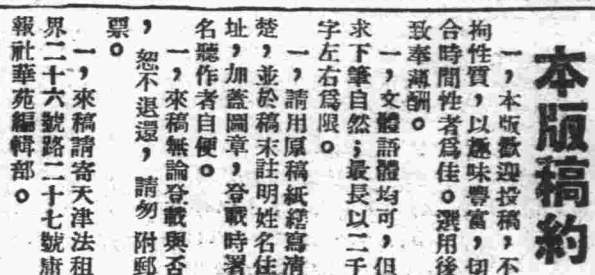 本版稿約
一，本版歡迎投稿，不
拘性質，以趣味豐富，切
合時間性者爲佳。選用後
致奉薄酬。
一，文體語體均可，但
求下筆自然；最長以二千
字左右爲限。
一，請用原稿紙繕寫清
楚，並於稿末註明姓名住
址，加蓋圖章，登載時署
名聽作者自便。
一，來稿無論登載與否
，恕不退還，請勿附郵
票。
一，來稿請寄天津法租
界二十六號路二十七號庸
報社華苑編輯部。